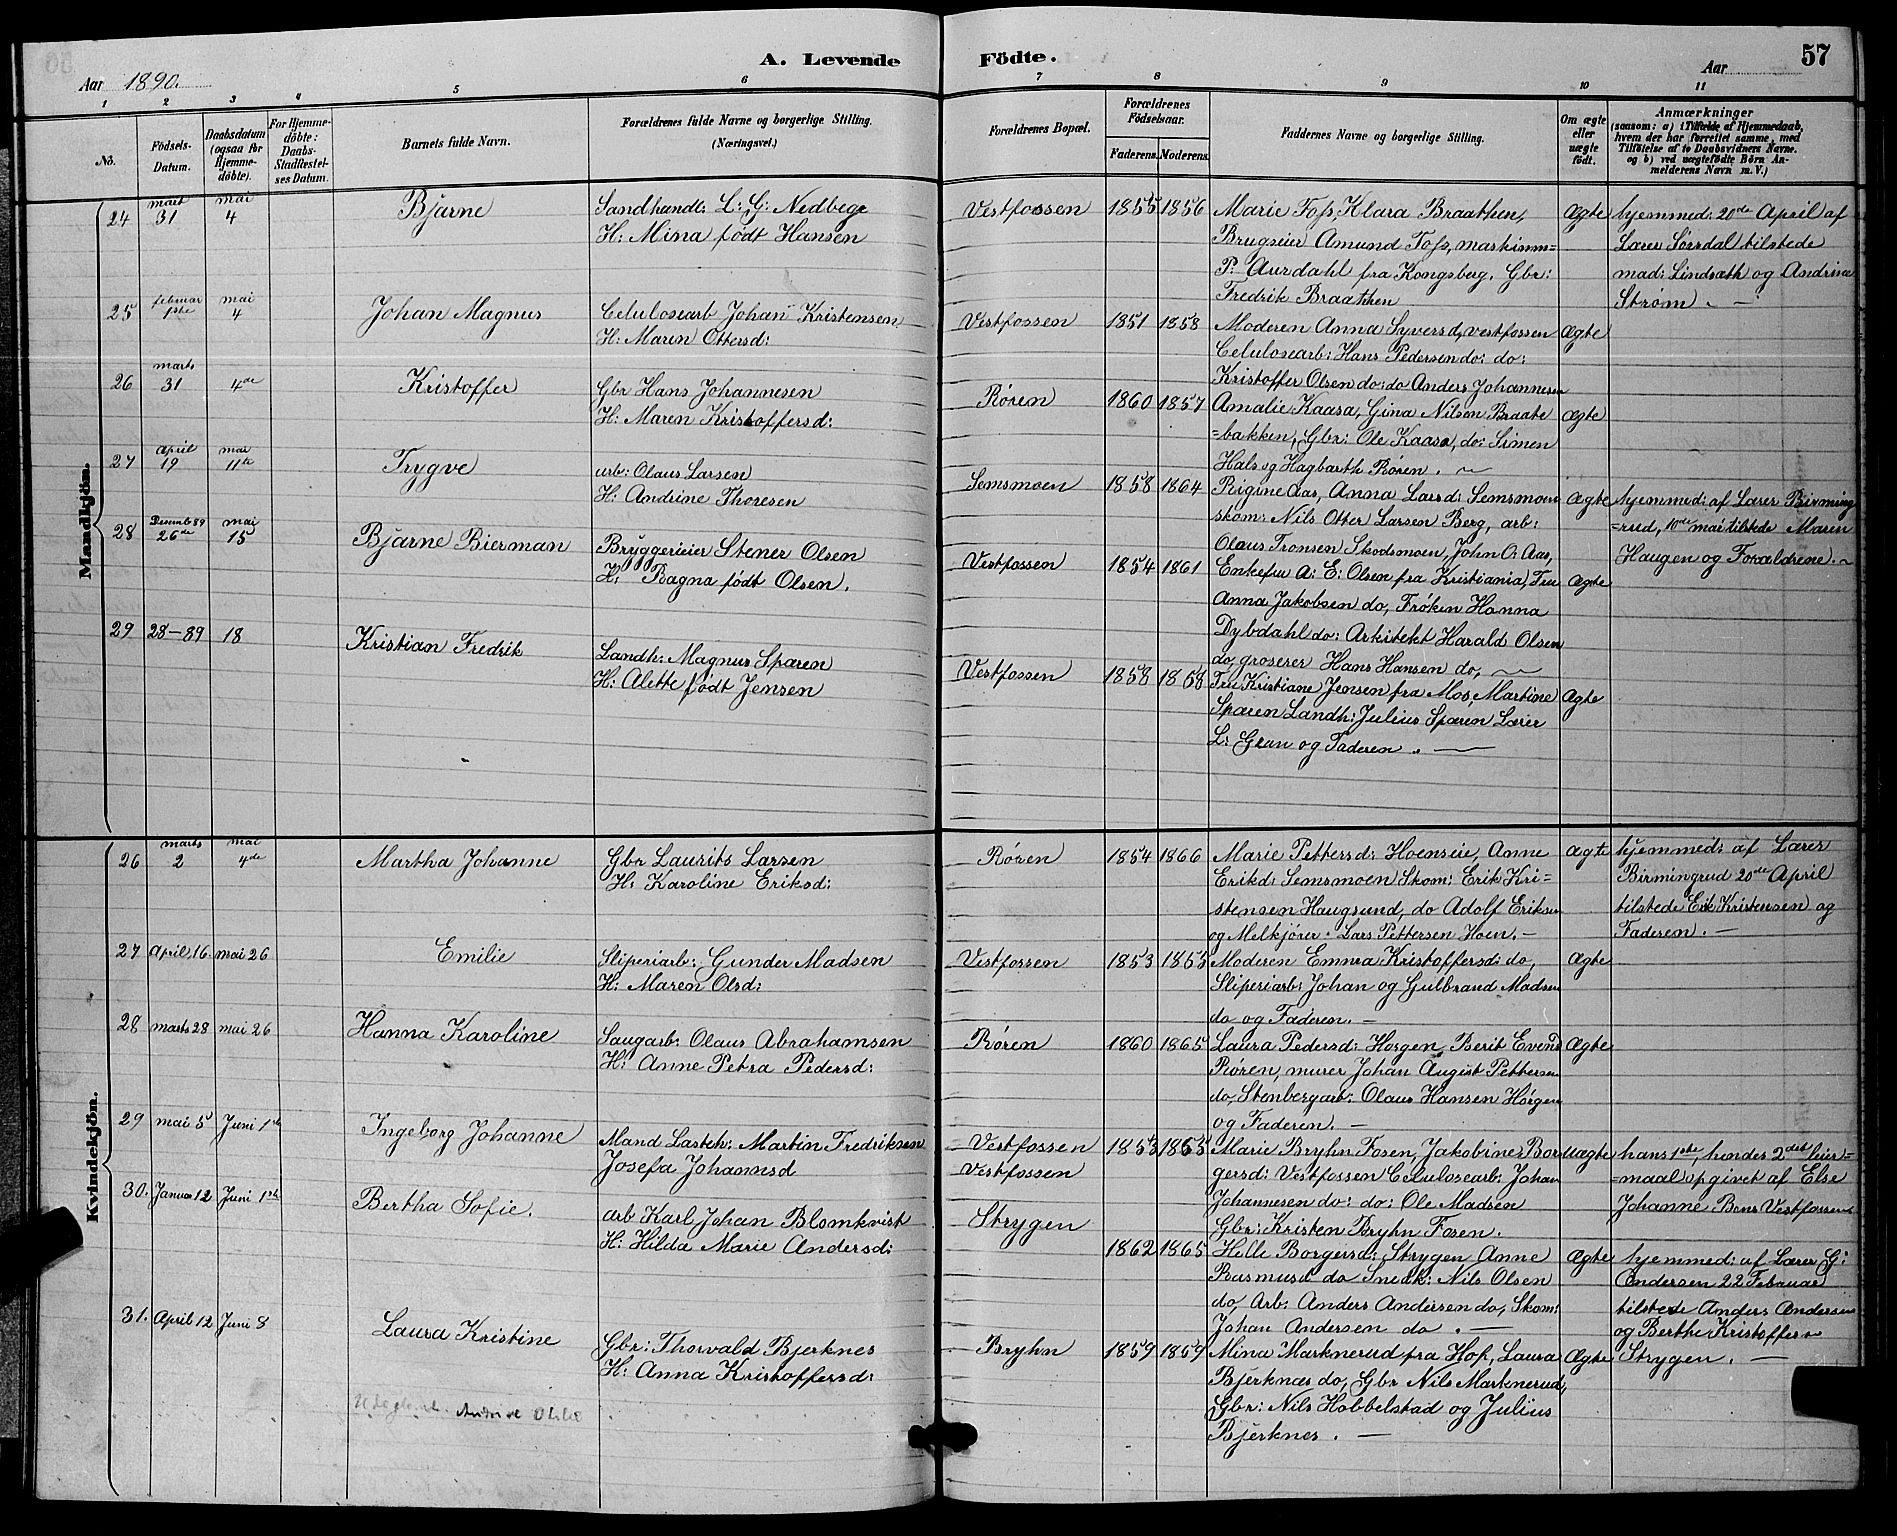 A. Levende Födte.
57
Aar 1890.
Aar
1 2 3 4 5 6 7 8 9 10 11
No.
Födsels-Datum.
Daabsdatum (ogsaa for Hjemme-döbte).
For Hjemme-döbte: Daabs-Stadfæstel-ses Datum.
Barnets fulde Navn.
Forældrenes fulde Navne og borgerlige Stilling. (Næringsvei.)
Forældrenes Bopæl.
Forældrenes Födselsaar.
Faderens. Moderens.
Faddernes Navne og borgerlige Stilling.
Om ægte eller uægte født.
Anmærkninger
(saasom: a) i Tilfælde af Hjemmedaab,
hvem der har forrettet samme, med
Tilföielse af to Daabsvidners Navne.
og b) ved uægtefödte Börn An-
melderens Navn m. V.)
Mandkjön.
24 marts 31 mai 4 Bjarne
Landhandl: L: G: Nedbege
H: Mina født Hansen
Vestfossen 1855 1856
Marie Foss, Klara Braathen,
Brugseier Amund Foss, maskinm=
P: Aurdahl fra Kongsberg, Gbr:
Fredrik Braathen
Ægte
hjemmed: 20de April af
Lærer Sørsdal tilstede
mad: Lindsæth og Andrine
Strøm. —
25 februar 1ste mai 4 Johan Magnus
Celulosearb Johan Kristensen
H: Maren Ottersd:
Vestfossen 1851 1858
Moderen Anna Syversd, vestfossen
Celulosearb: Hans Pedersen do: do:
Kristoffer Olsen do: do Anders Johannesen
Ægte
26 marts 31 4de Kristoffer
Gbr Hans Johannesen
H: Maren Kristoffersd:
Røren 1860 1857
Amalie Kaasa, Gina Nilsen Braate
=bakken, Gbr: Ole Kaasa, do: Simen
Hals og Hagbarth Røren. —
Ægte
27 April 19 mai 11te Trygve
arb: Olaus Larsen
H: Andrine Thoresen
Semsmoen 1858 1864
Rigine Aas, Anna Larsd: Semsmoen
skom: Nils Otter Larsen Berg, arb:
Olaus Tronsen Skodsmoen, John O: Aas,
Ægte
hjemmed: af Lærer Birming
=rud, 10de mai tilstede Maren
Haugen og Forældrene. —
28 Desemb 89 26de mai 15 Bjarne Bierman
Bryggerieier Stener Olsen
H: Ragna født Olsen.
Vestfossen 1854 1861
Enkefru A: E: Olsen fra Kristiania, Fru
Anna Jakobsen do, Frøken Hanna
Dybdahl do: Arkitekt Harald Olsen
do, groserer Hans Hansen do, —
Ægte
29 28–89 18 Kristian Fredrik
Landh: Magnus Sparen
H: Alette født Jensen
Vestfossen 1858 1868
Fru Kristiane Jensen fra Mos, Martine
Sparen Landh: Julius Sparen Lærer
L: Gran og Faderen. —
Ægte
Kvindekjön.
26 marts 2 mai 4de Martha Johanne
Gbr Laurits Larsen
H: Karoline Eriksd:
Røren 1854 1866
Marie Pettersd: Hoenseie, Anne
Eriksd: Semsmoen Skom: Erik Kri=
stensen Haugsund, do Adolf Eriksen
og Melkjører Lars Pettersen Hoen. —
Ægte
hjemmed: af Lærer
Birmingrud 20de April
tilstede Erik Kristensen og
Faderen. —
27 April 16 mai 26 Emilie
Sliperiarb: Gunder Madsen
H: Maren Olsd:
Vestfossen 1853 1853
Moderen Emma Kristoffersd: do,
Sliperiarb: Johan og Gulbrand Madsen
do og Faderen. —
Ægte
28 marts 28 mai 26 Hanna Karoline
Saugarb: Olaus Abrahamsen
H: Anne Petra Pedersd:
Røren 1860 1865
Laura Pedersd: Horgen, Berit Evensd
Røren, murer Johan August Pettersen
do, Stenbergarb: Olaus Hansen Horgen
og Faderen. —
Ægte
29 mai 5 Juni 1ste Ingeborg Johanne
Mand Lasteh: Martin Fredriksen
Josefa Johannsd
Vestfossen
Vestfossen
1853 1863
Marie Bryhn Fosen, Jakobine Bor
gersd: Vestfossen Celulosearb: Johan
Johannesen do: do: Ole Madsen
Gbr: Kristen Bryhn Fosen.
uægte
hans 1ste, hendes 2det leier=
=maal opgivet af Else
Johanne Bons Vestfossen
30. Januar 12 Juni 1ste Bertha Sofie.
arb Karl Johan Blomkvist
H: Hilda Marie Andersd:
Strygen 1862 1865
Helle Borgersd: Strygen, Anne
Rasmusd do Snedk: Nils Olsen
do, Arb: Anders Andersen do, Skom:
Johan Andersen do. —
Ægte
hjemmed: af Lærer G:
Andersen 22 Februar
tilstede Anders Andersen
og Berthe Kristoffersen
Strygen. —
31. April 12 Juni 8 Laura Kristine
Gbr: Thorvald Bjerknes
H: Anna Kristoffersd:
Bryhn 1859 1859
Mina Marknerud fra Hof, Laura
Bjerknæs do, Gbr Nils Marknerud,
Gbr: Nils Hobbelstad og Julius
Bjerknes. —
Ægte